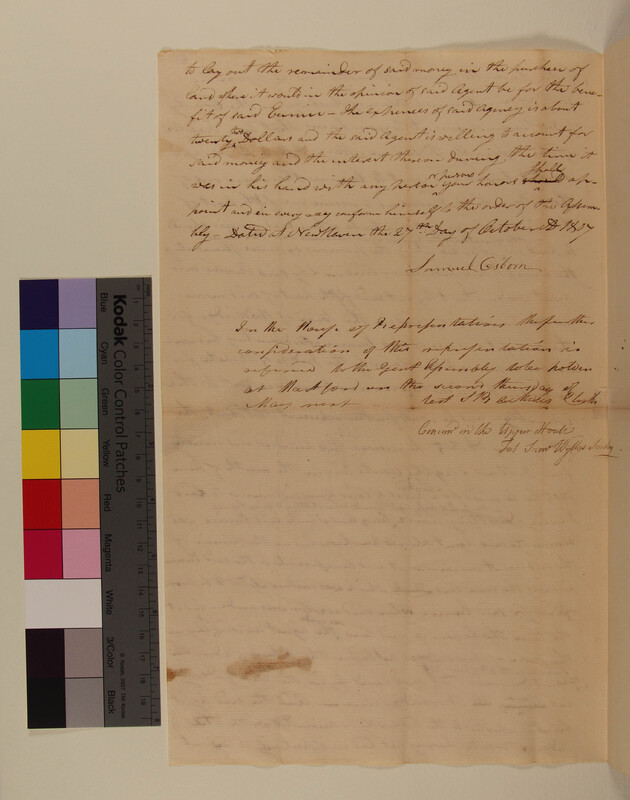 to lay out the remainder of said money in the purchase of
land where it would in the opinion of said Agent be for the bene-
fit of said Eunice – The expences of said Agency is about
twenty two Dollars and the said Agent is willing to account for
said money and the interest thereon during the time it
was in his hand with any person or persons your honors shall ap-
point and in every way conform himself to the order of the Assem-
bly – Dated at New Haven the 27th Day of October AD 1807
Samuel Osborn
In the House of Representatives the further
consideration of this representation is
referred to the Genl Assembly to be holden
at Hartford on the second thursday of
May next test Clerk
Concurd in the Upper House
Test Saml Wyllys Secrety
Kodak
Color Control Patches
Blue
Cyan
Green
Yellow
Red
Magenta
White
3/Color
Black